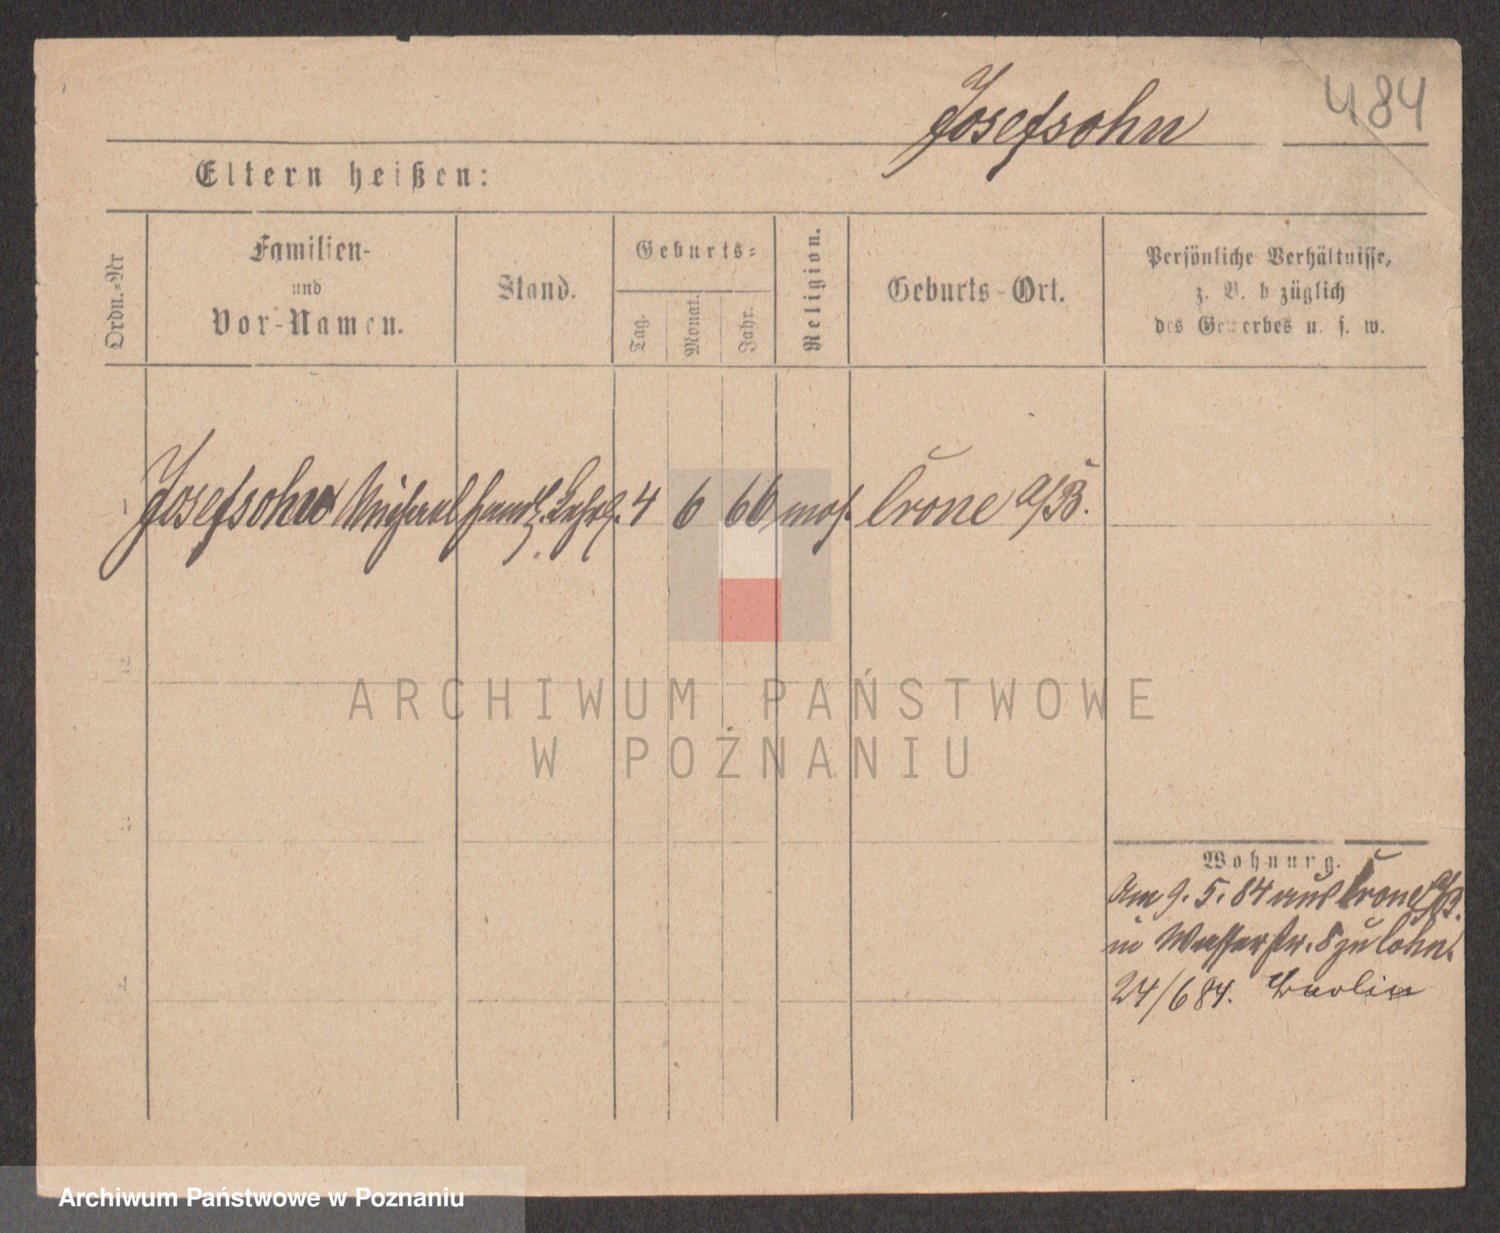 484
Josefsohn
Eltern heißen:
Ordn.-Nr
Familien-
und
Vor-Namen.
Stand.
Geburts-
Tag.
Monat.
Jahr.
Religion.
Geburts-Ort.
Persönliche Verhältnisse,
z. B. bezüglich
des Gewerbes u. s. w.
1 Josefsohn Michael Handl. Lehrl. 4 6 66 mos. Crone a/B.
2
3
4
Wohnung.
Am 9. 5. 84 aus Crone a/B.
in Wasserstr. 8 zu Cohn.
24/6 84. Berlin
ARCHIWUM PAŃSTWOWE
W POZNANIU
Archiwum Państwowe w Poznaniu